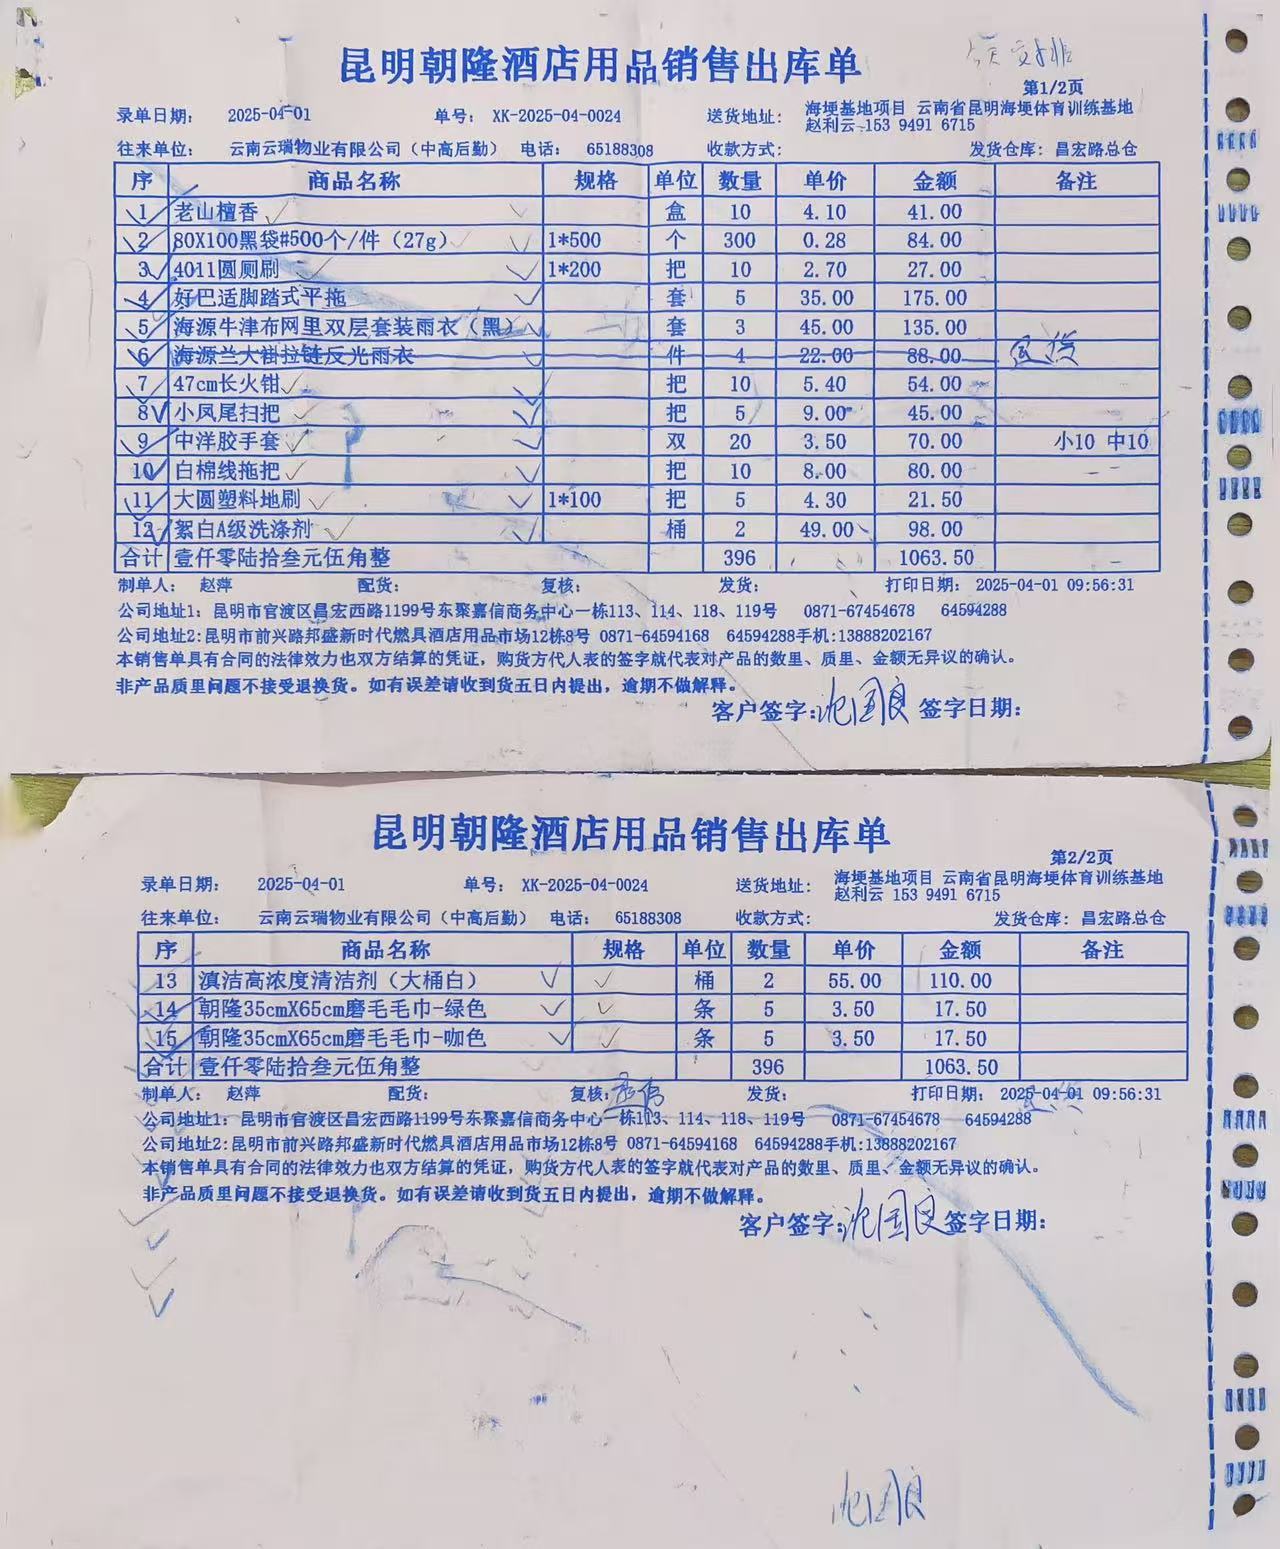 昆明朝隆酒店用品销售出库单
第1/2页
录单日期： 2025-04-01 单号： XK-2025-04-0024 送货地址： 海埂基地项目 云南省昆明海埂体育训练基地
赵利云 153 9491 6715
往来单位： 云南云瑞物业有限公司（中高后勤） 电话： 65188308 收款方式： 发货仓库：昌宏路总仓
序 商品名称 规格 单位 数量 单价 金额 备注
1 老山檀香 盒 10 4.10 41.00
2 80X100黑袋#500个/件（27g） 1*500 个 300 0.28 84.00
3 4011圆厕刷 1*200 把 10 2.70 27.00
4 好巴适脚踏式平拖 套 5 35.00 175.00
5 海源牛津布网里双层套装雨衣（黑） 套 3 45.00 135.00
6 海源兰大褂拉链反光雨衣 件 4 22.00 88.00
7 47cm长火钳 把 10 5.40 54.00
8 小凤尾扫把 把 5 9.00 45.00
9 中洋胶手套 双 20 3.50 70.00 小10 中10
10 白棉线拖把 把 10 8.00 80.00
11 大圆塑料地刷 1*100 把 5 4.30 21.50
12 絮白A级洗涤剂 桶 2 49.00 98.00
合计 壹仟零陆拾叁元伍角整 396 1063.50
制单人： 赵萍 配货： 复核： 发货： 打印日期： 2025-04-01 09:56:31
公司地址1：昆明市官渡区昌宏西路1199号东聚嘉信商务中心一栋113、114、118、119号 0871-67454678 64594288
公司地址2:昆明市前兴路邦盛新时代燃具酒店用品市场12栋8号 0871-64594168 64594288手机:13888202167
本销售单具有合同的法律效力也双方结算的凭证，购货方代人表的签字就代表对产品的数里、质里、金额无异议的确认。
非产品质里问题不接受退换货。如有误差请收到货五日内提出，逾期不做解释。
客户签字：沈国良 签字日期：
昆明朝隆酒店用品销售出库单
第2/2页
录单日期： 2025-04-01 单号： XK-2025-04-0024 送货地址： 海埂基地项目 云南省昆明海埂体育训练基地
赵利云 153 9491 6715
往来单位： 云南云瑞物业有限公司（中高后勤） 电话： 65188308 收款方式： 发货仓库：昌宏路总仓
序 商品名称 规格 单位 数量 单价 金额 备注
13 滇洁高浓度清洁剂（大桶白） 桶 2 55.00 110.00
14 朝隆35cmX65cm磨毛毛巾-绿色 条 5 3.50 17.50
15 朝隆35cmX65cm磨毛毛巾-咖色 条 5 3.50 17.50
合计 壹仟零陆拾叁元伍角整 396 1063.50
制单人： 赵萍 配货： 复核： 发货： 打印日期： 2025-04-01 09:56:31
公司地址1：昆明市官渡区昌宏西路1199号东聚嘉信商务中心一栋113、114、118、119号 0871-67454678 64594288
公司地址2:昆明市前兴路邦盛新时代燃具酒店用品市场12栋8号 0871-64594168 64594288手机:13888202167
本销售单具有合同的法律效力也双方结算的凭证，购货方代人表的签字就代表对产品的数里、质里、金额无异议的确认。
非产品质里问题不接受退换货。如有误差请收到货五日内提出，逾期不做解释。
客户签字：沈国良 签字日期：
沈国良